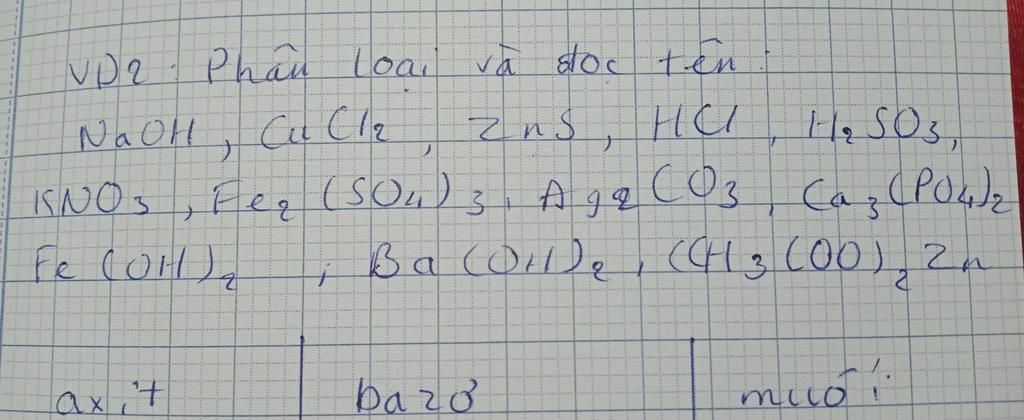 VD2: Phân loại và đọc tên:
NaOH, CuCl2, ZnS, HCl, H2SO3,
KNO3, Fe2(SO4)3, Ag2CO3, Ca3(PO4)2
Fe(OH)2, Ba(OH)2, (CH3COO)2Zn
axit bazơ muối